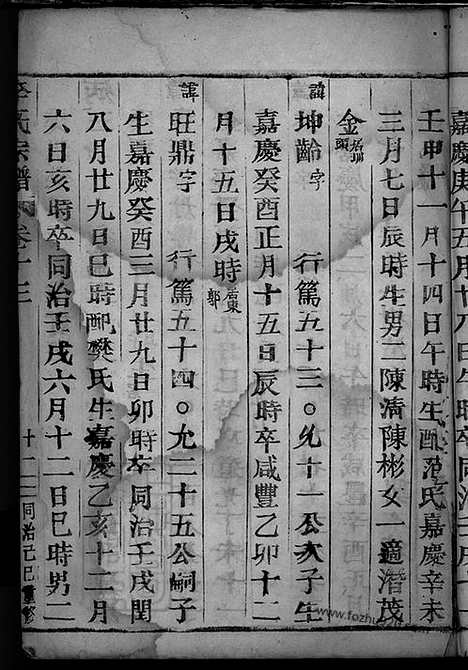 嘉慶庚午五月十八日午時卒同治
壬申十一月十四日午時生配范氏嘉慶辛未
三月七日辰時生男二陳清陳彬女一適潛茂
金
諱坤齡字 行篤五十三○允十一公次子生
嘉慶癸酉正月十五日辰時卒咸豐乙卯十二
月十五日戌時廣東郭
諱旺鼎字 行篤五十四○允二十五公嗣子
生嘉慶癸酉三月廿九日卯時卒同治壬戌閏
八月廿九日巳時配樊氏生嘉慶乙亥十二月
六日亥時卒同治壬戌六月十二日巳時男二
氏宗譜 卷十三 十二 同治己巳重修
www.fozhu